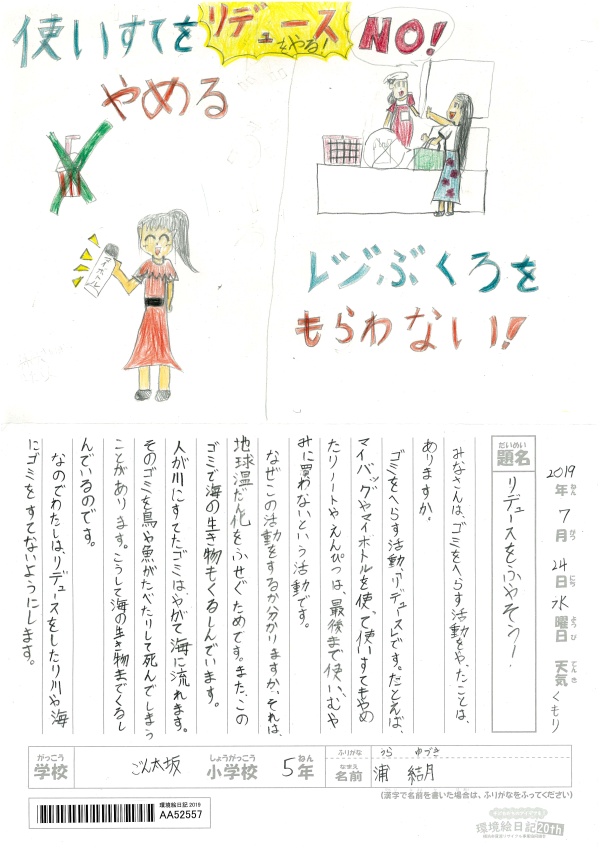 使いすてを
やめる
リデュース
をやる!
NO!
マイボトル
レジぶくろを
もらわない!!
2019年7月24日水曜日 天気くもり
ねん がつ にち ようび てんき
だいめい
題名
リデュースをふやそう!
みなさんは、ゴミをへらす活動をやったことは、
ありますか。
ゴミをへらす活動、リデュースです。たとえば、
マイバッグやマイボトルを使って使いすてをやめ
たりノートやえんぴつは、最後まで使い、むや
みに買わないという活動です。
なぜこの活動をするか分かりますか、それは、
地球温だん化をふせぐためです。また、この
ゴミで海の生き物もくるしんでいます。
人が川にすてたゴミは、やがて海に流れます。
そのゴミを鳥や魚がたべたりして死んでしまう
ことがあります。こうして海の生き物までくるし
んでいるのです。
なのでわたしは、リデュースをしたり川や海
にゴミをすてないようにします。
がっこう
学校
ごん太坂
しょうがっこう
小学校
5年
ねん
ふりがな
うら ゆづき
なまえ
名前
浦 結月
(漢字で名前を書いた場合は、ふりがなをふってください)
環境絵日記 2019
AA52557
環境絵日記20th